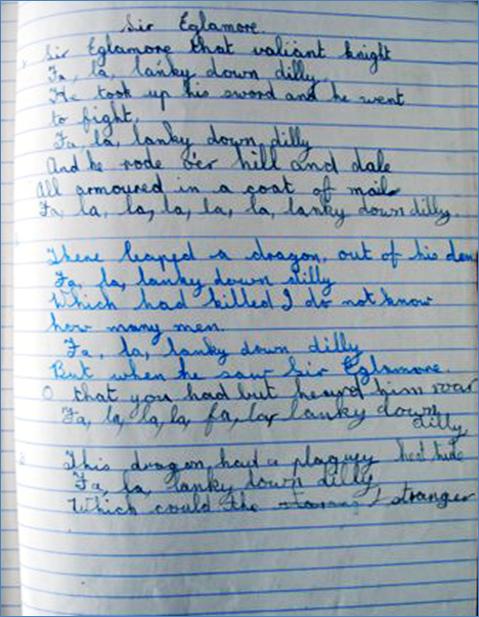 Sir Eglamore.
Sir Eglamore that valiant knight
Fa, la, lanky down dilly.
He took up his sword and he went
to fight,
Fa, la, lanky down dilly
And he rode o'er hill and dale
All armoured in a coat of mail
Fa, la, la, la, la, la, lanky down dilly.
There leaped a dragon, out of his den
Fa, la, lanky down dilly
Which had killed I do not know
how many men.
Fa, la, lanky down dilly
But when he saw Sir Eglamore.
O that you had but heard him roar
Fa, la, la, la, fa, la, lanky down
dilly
This dragon, had a plaguey hide
Fa, la, lanky down dilly
Which could the stranger